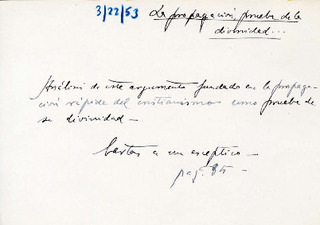 3/22/53
La propagación, prueba de la
divinidad...
Análisis de este argumento fundado en la propaga-
ción rápida del cristianismo como prueba de
su divinidad -
Cartas a un escéptico -
pag. 35 -